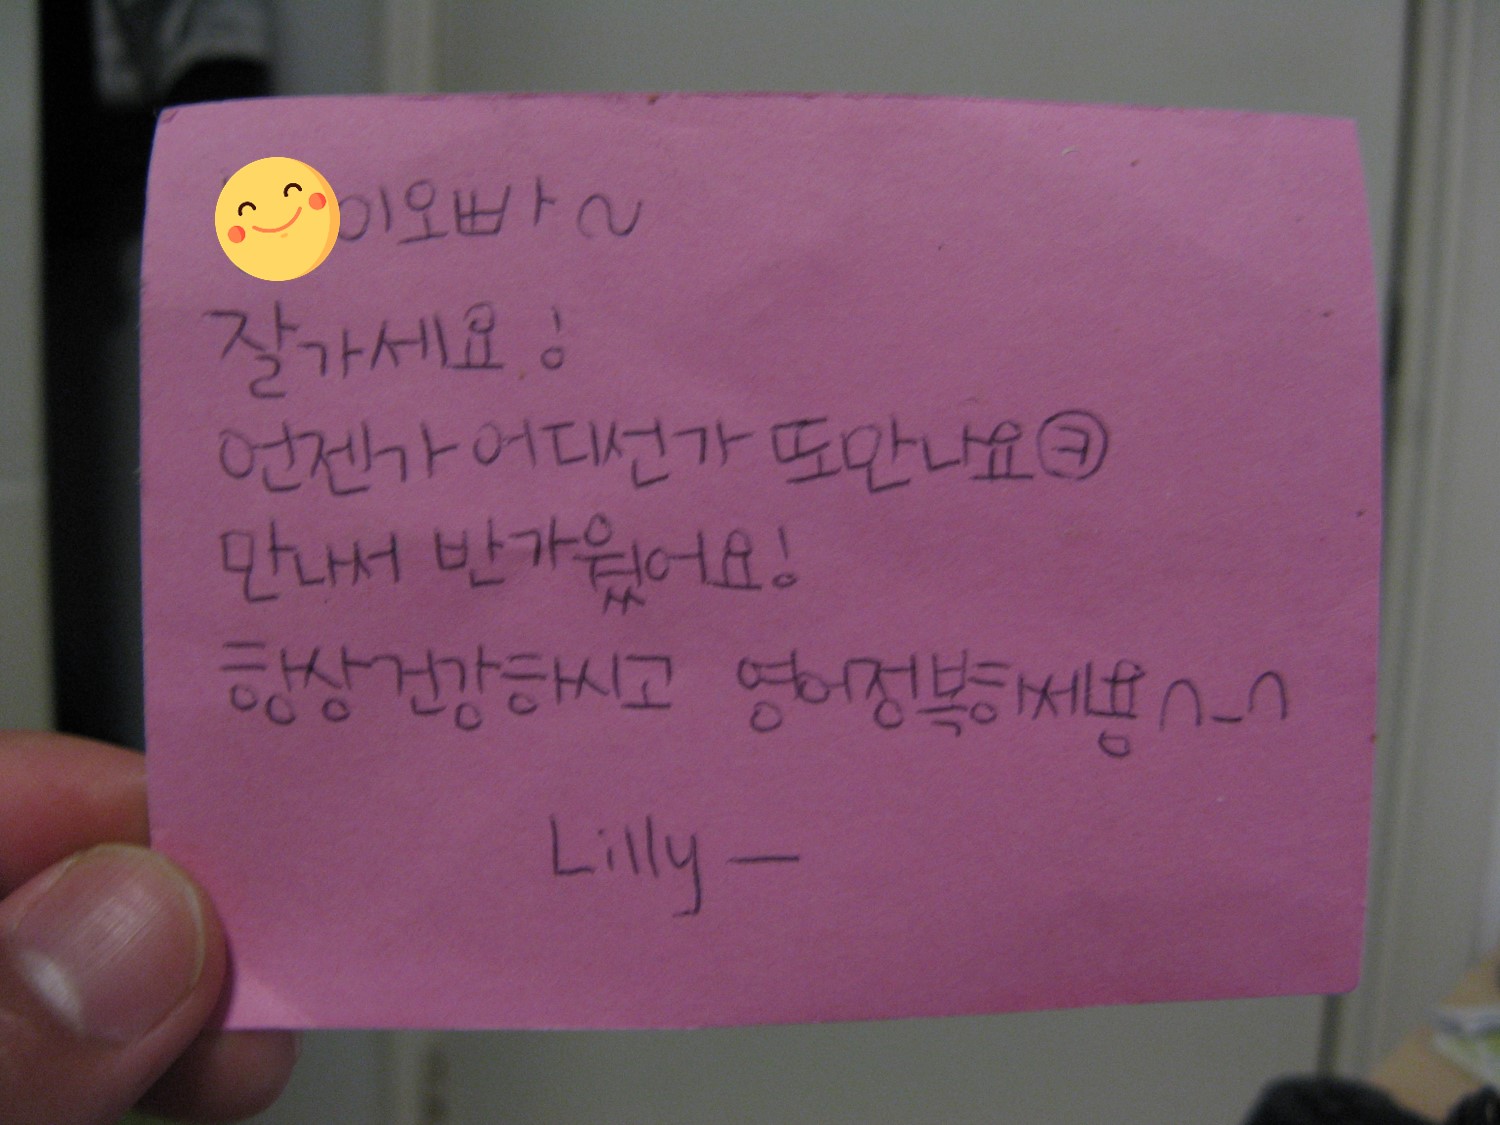 이오빠~
잘가세요!
언젠가 어디선가 또만나요㋋
만나서 반가웠어요!
항상건강하시고 영어정복하세용∩_∩
Lilly—